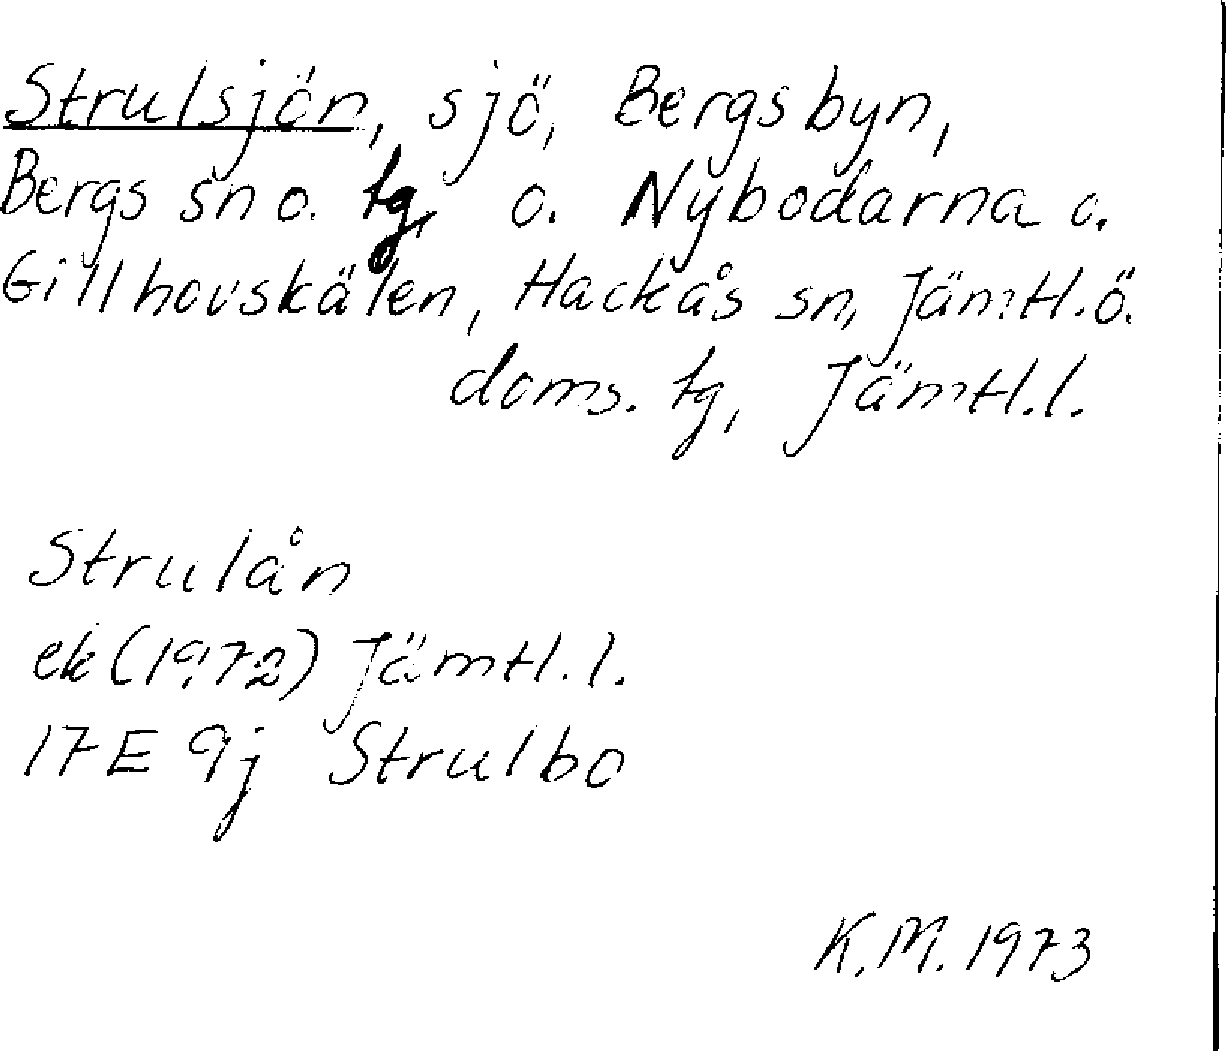 Strulsjön, sjö, Bergsbyn,
Bergs sn o. tg, o. Nybodarna o.
Gillhovskälen, Hackås sn, Jämtl.ö.
doms. tg, Jämtl.l.
Strulån
ek (1972) Jämtl.l.
17E 9j Strulbo
K.M. 1973